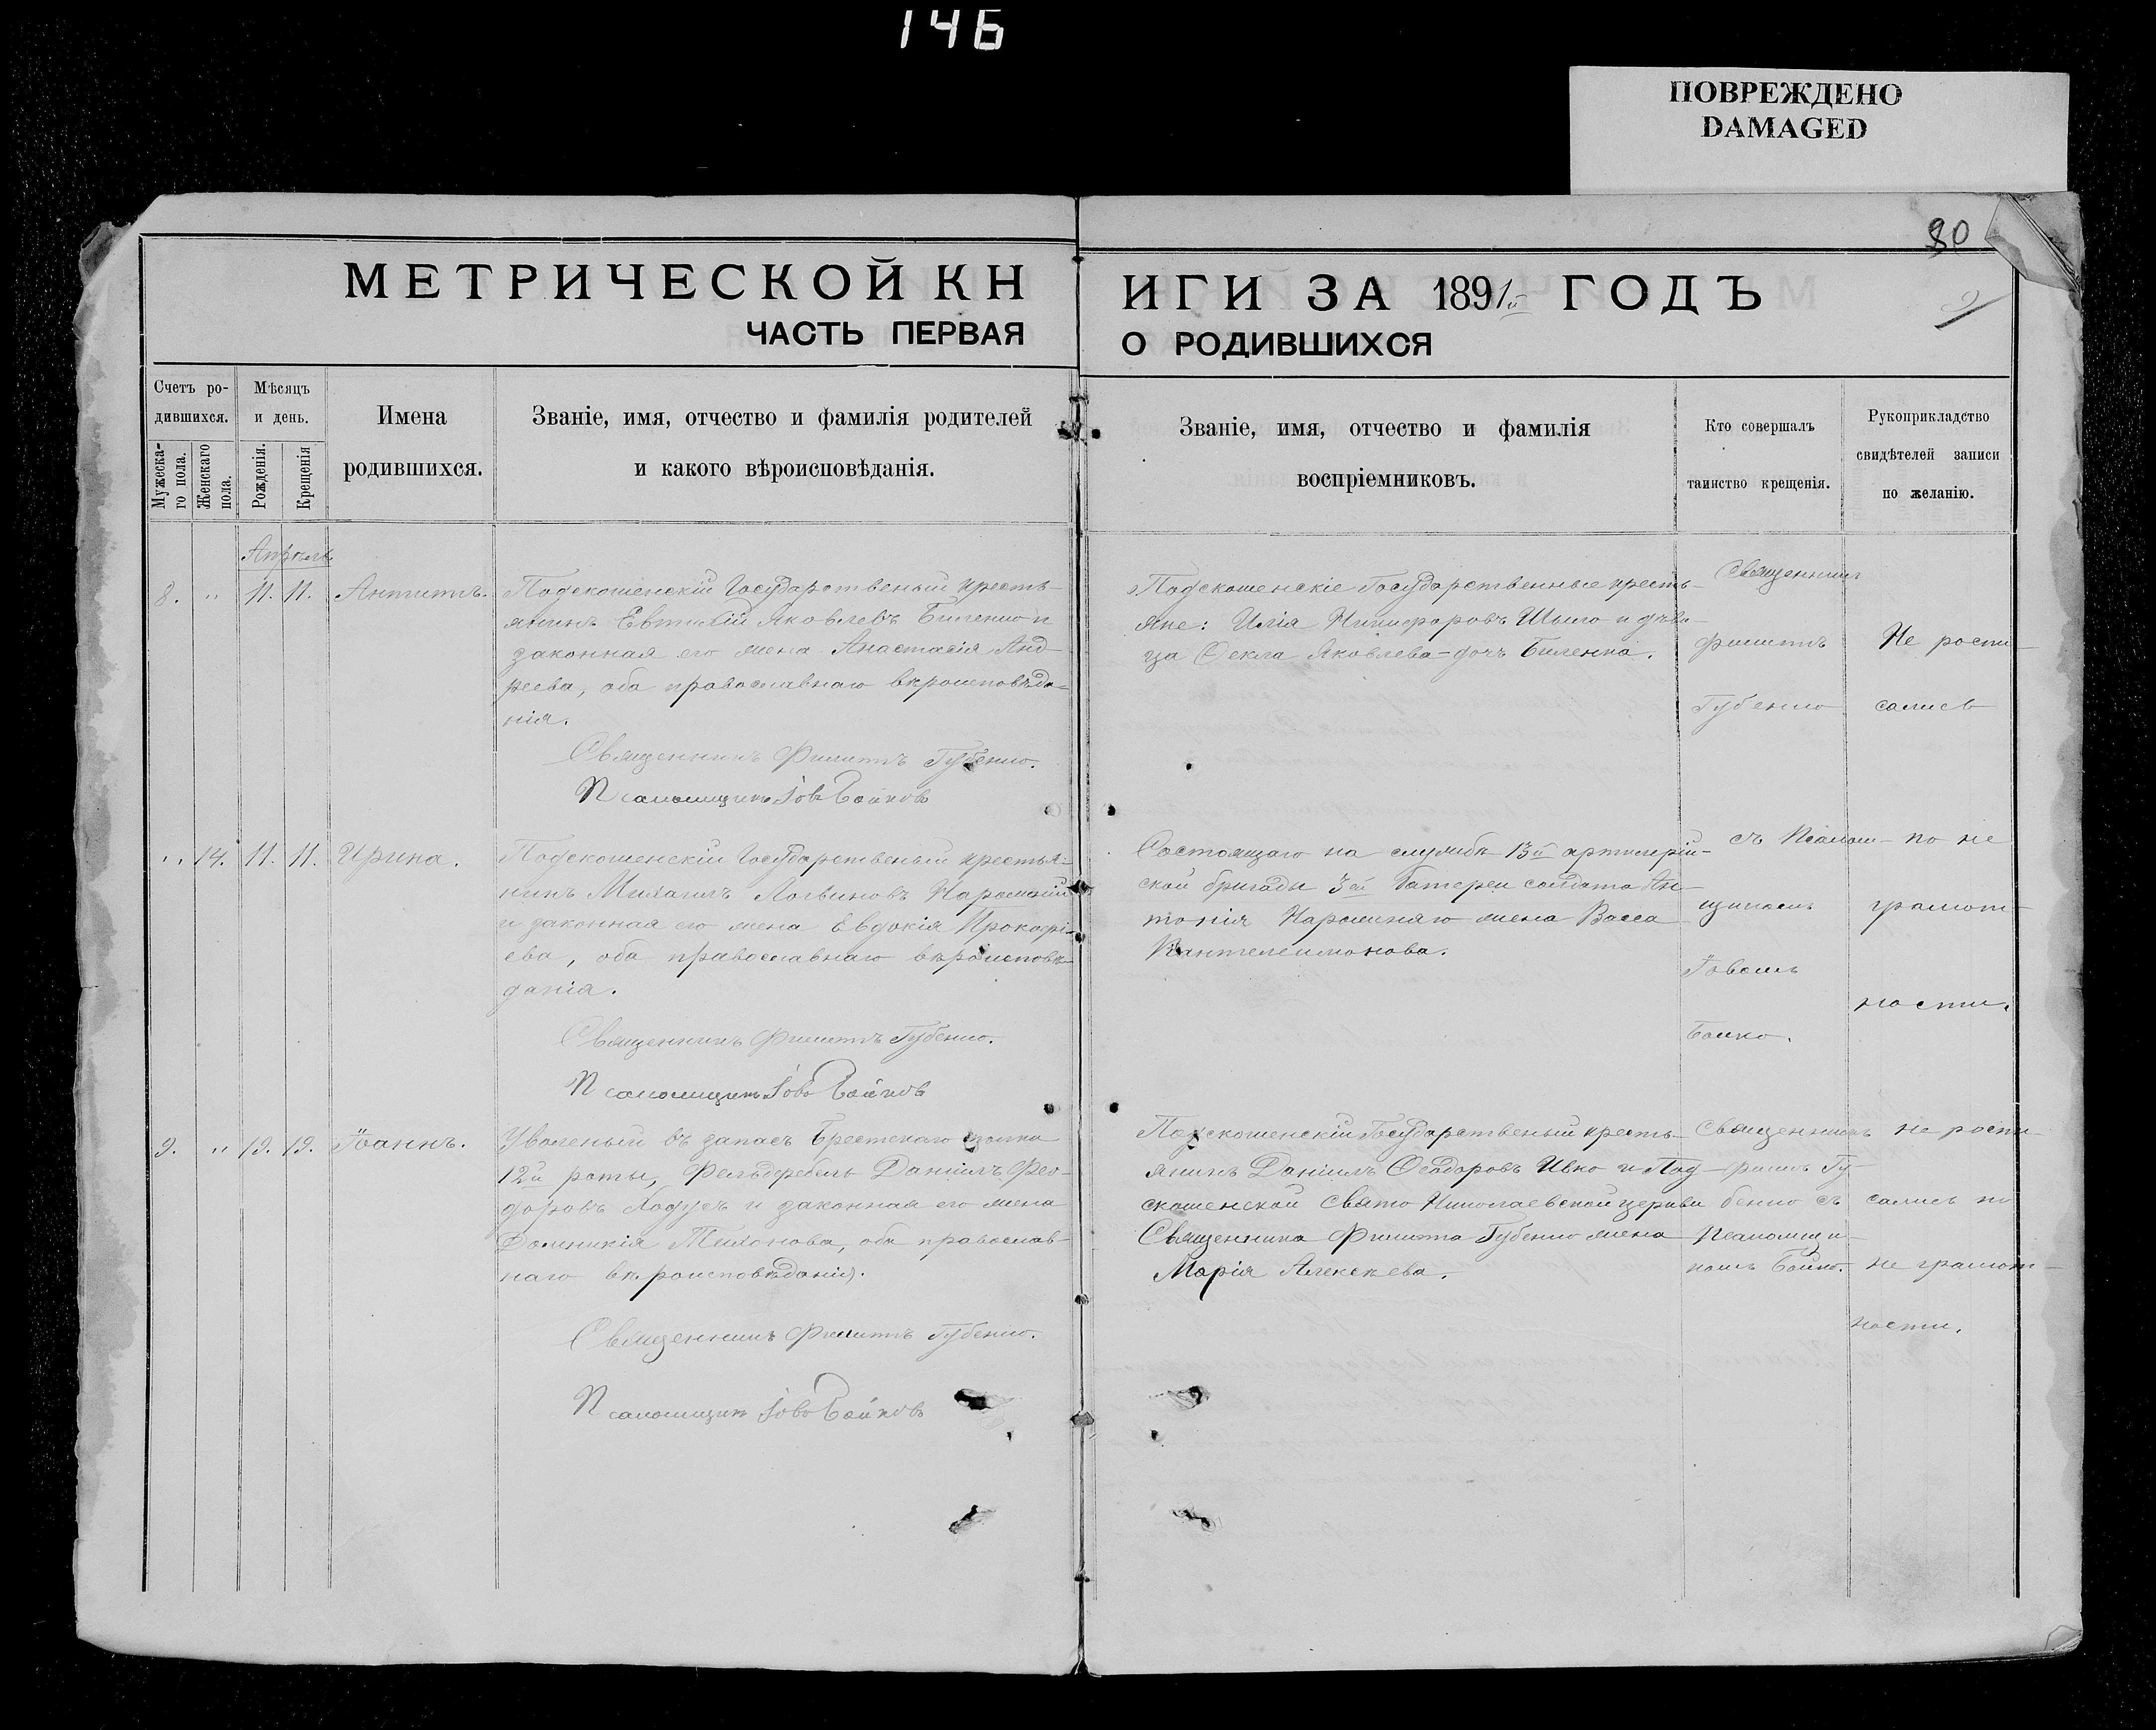 146
ПОВРЕЖДЕНО
DAMAGED
80
МЕТРИЧЕСКОЙ КН
ИГИ ЗА 1891й ГОДЪ
ЧАСТЬ ПЕРВАЯ
О РОДИВШИХСЯ
Счетъ ро-
дившихся.
Мужеска-
го пола.
Женскаго
пола.
Мѣсяцъ
и день.
Рожденія.
Крещенія
Имена
родившихся.
Званіе, имя, отчество и фамилія родителей
и какого вѣроисповѣданія.
Званіе, имя, отчество и фамилія
воспріемниковъ.
Кто совершалъ
таинство крещенія.
Рукоприкладство
свидѣтелей записи
по желанію.
Апрѣль
8. " 11. 11. Антипъ.
Подскошенскій Государственый кресть-
янинъ Евтихій Яковлевъ Биленко и
законная его жена Анастасія Анд-
реева, оба православнаго вѣроисповѣда-
нія.
Священникъ Филиппъ Губенко.
Псаломщикъ Іовъ Бойковъ
Подскошенскіе Государственные кресть-
яне: Илія Никифоровъ Шыло и дѣви-
ца Ѳекла Яковлева-дочь Биленка.
Священникъ
Филиппъ
Губенко
Не роспи-
сались
" 14. 11. 11. Ирина.
Подскошенскій Государственый крестья-
нинъ Михаилъ Логвиновъ
и законная его жена Евдокія Прокофі-
ева, оба православнаго вѣроисповѣ-
данія.
Священникъ Филиппъ Губенко.
Псаломщикъ Іовъ Бойковъ
Состоящаго на службѣ 13й артилерій-
ской бригады 3ей батереи солдата Ан-
тонія жена Васса
Пантелеимонова.
съ Псалом-
щикомъ
Іовомъ
Бойко.
по не
грамот-
ности.
9. " 19. 19. Іоаннъ.
Уволеный въ запасъ Брестскаго полка
12й роты, Фельдфебель Даніилъ Фео-
доровъ Ходусъ и законная его жена
Домникія Тихонова, оба православ-
наго вѣроисповѣданія.
Священникъ Филиппъ Губенко.
Псаломщикъ Іовъ Бойковъ
Подскошенскій Государственый кресть-
янинъ Даніилъ Ѳеодоровъ Ивко и Под-
скошенской Свято Николаевской церкви
Священника Филиппа Губенко жена
Марія Алексѣева.
Священникъ
Филип Гу-
бенко съ
Псаломщи-
комъ Бойко.
не роспи-
сались по
не грамот-
ности.